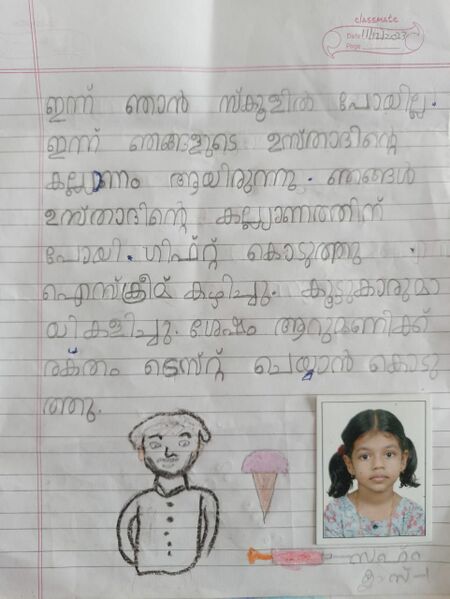 classmate
Date 11/12/2023
Page
ഇന്ന് ഞാൻ സ്കൂളിൽ പോയില്ല.
ഇന്ന് ഞങ്ങളുടെ ഉസ്താദിന്റെ
കല്ല്യാണം ആയിരുന്നു. ഞങ്ങൾ
ഉസ്താദിന്റെ കല്ല്യാണത്തിന്
പോയി. ഗിഫ്റ്റ് കൊടുത്തു.
ഐസ്ക്രീമ് കഴിച്ചു. കൂട്ടുകാരുമാ
യി കളിച്ചു. ശേഷം ആറുമണിക്ക്
രക്തം ടെസ്റ്റ് ചെയ്യാൻ കൊടു
ത്തു.
ക്ലാസ്-1